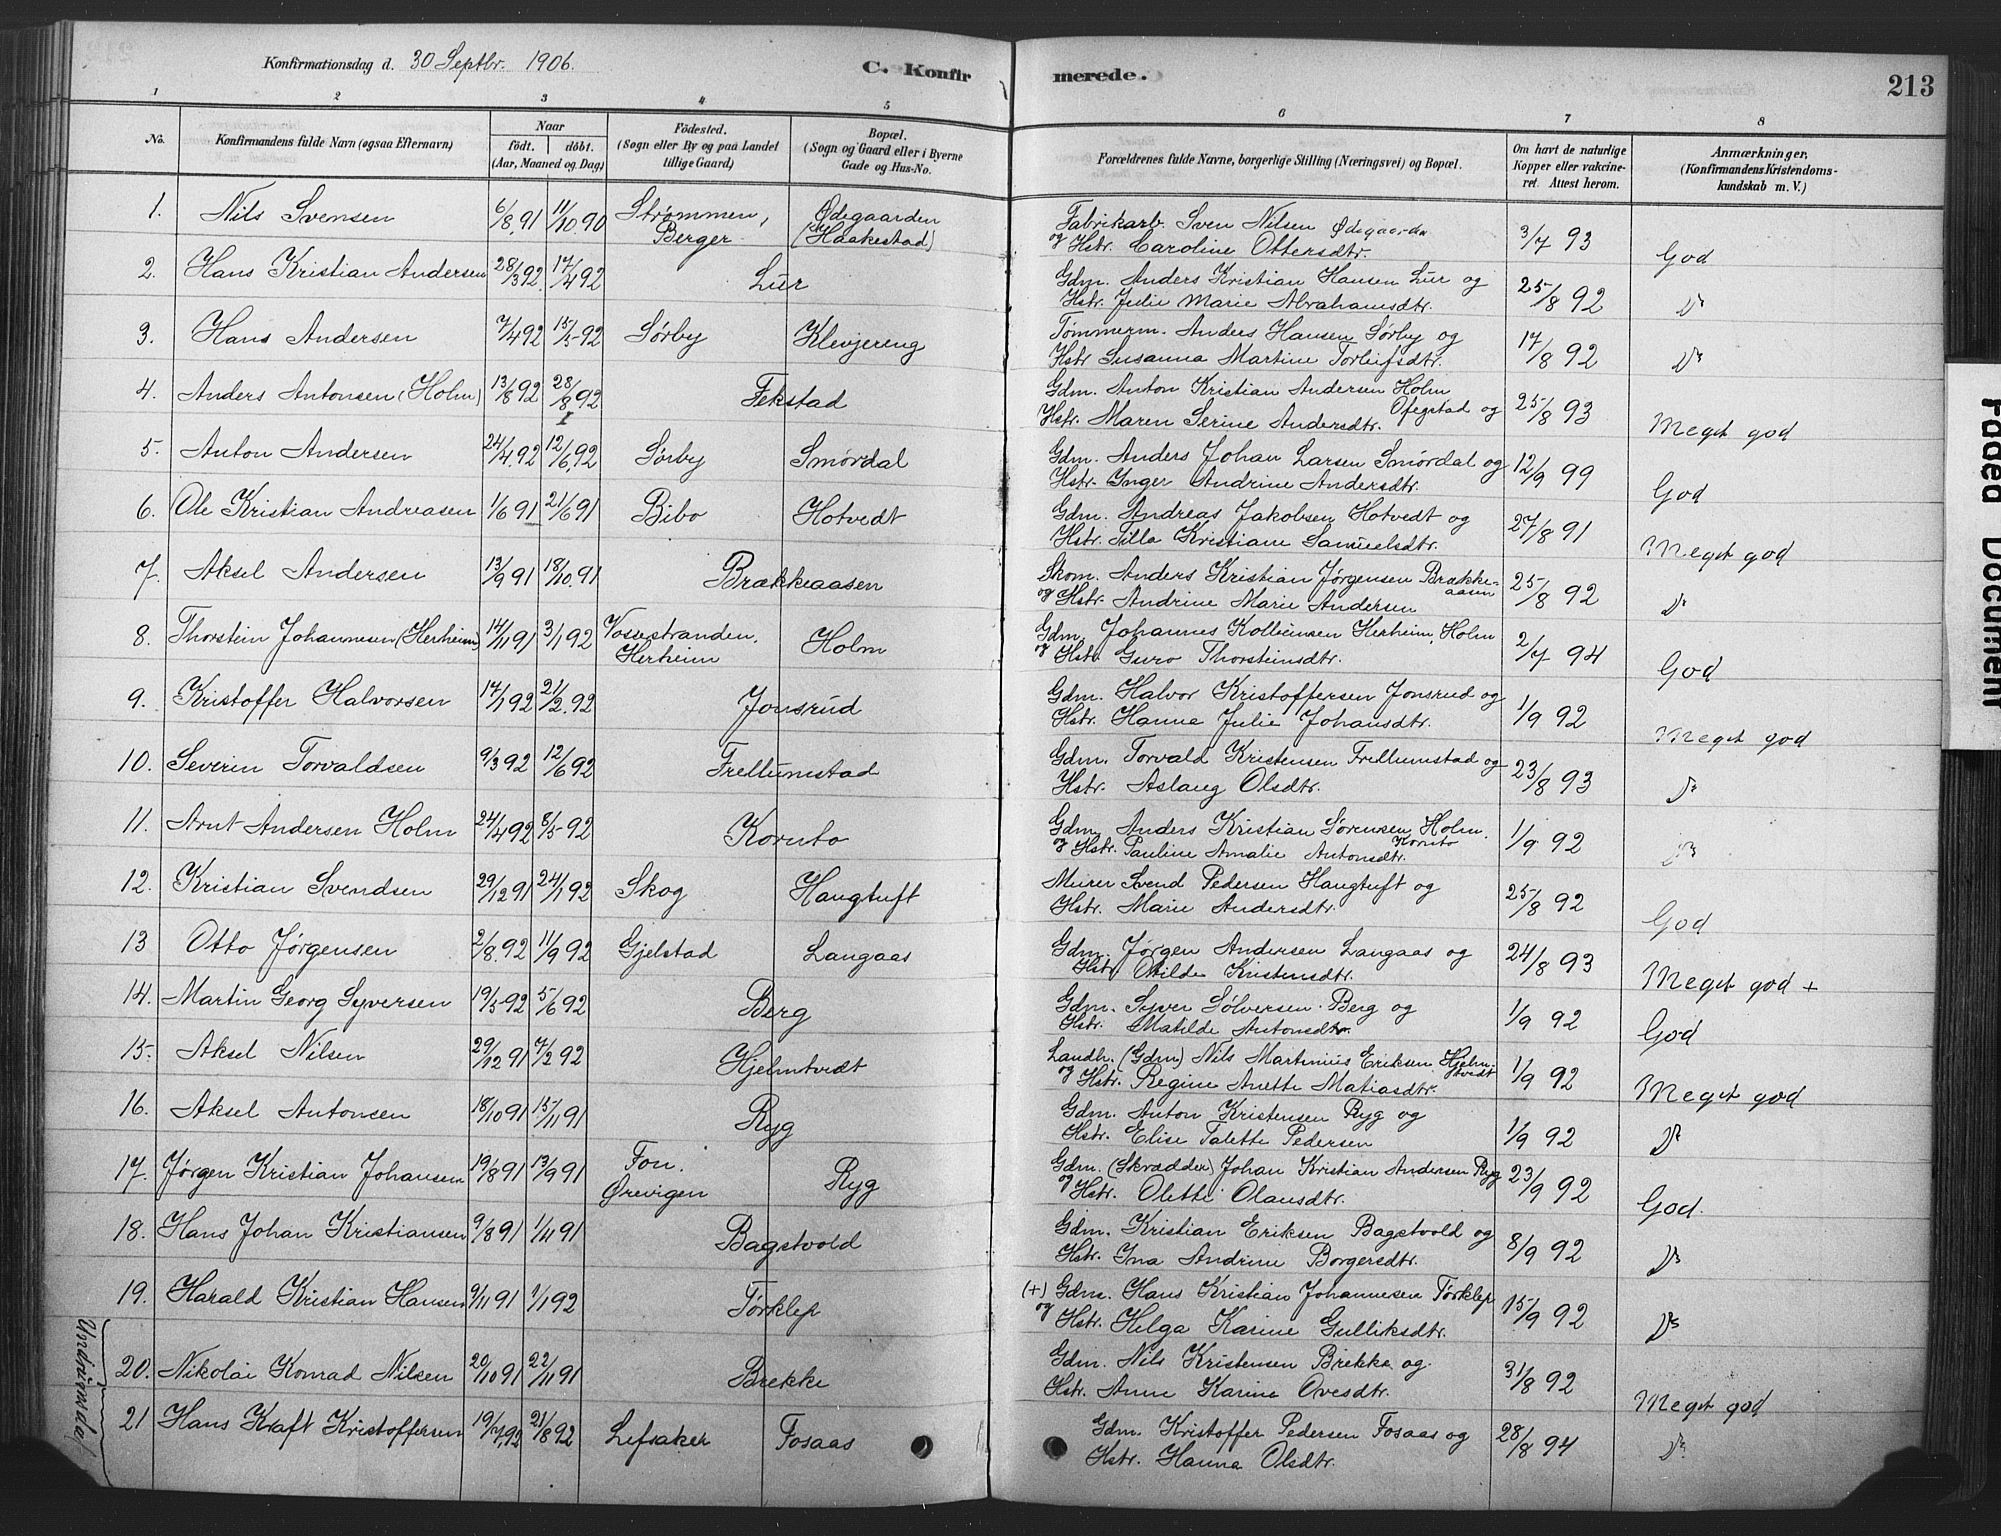 Konfirmationsdag d. 30 Septbr. 1906.
C. Konfirmerede.
213
1 2 3 4 5 6 7 8
No.
Konfirmandens fulde Navn (ogsaa Efternavn)
Naar
födt. döbt.
(Aar, Maaned og Dag)
Födested.
(Sogn eller By og paa Landet
tillige Gaard)
Bopæl.
(Sogn og Gaard eller i Byerne
Gade og Hus-No.
Forældrenes fulde Navne, borgerlige Stilling (Næringsvei) og Bopæl.
Om havt de naturlige
Kopper eller vakcine-
ret. Attest herom.
Anmærkninger,
(Konfirmandens Kristendoms-
kundskab m. V.)
1. Nils Svensen 6/8.91 11/10.90 Strømmen, Ødegaarden Fabrikarb. Sven Nilsen Ødegaarden 3/7 93 God
Berger. (Haakestad) og Hstr. Caroline Ottersdtr.
2. Hans Kristian Andersen 28/3 92 17/4 92 Lur Gdm. Anders Kristian Hansen Lur og 25/8 92 do
Hstr. Julie Marie Abrahamsdtr.
3. Hans Andersen 7/4 92 15/5 92 Sørby Klevjereng Tømmerm. Anders Hansen Sørby og 17/8 92 do
Hstr. Susanna Martine Torleifsdtr.
4. Anders Antonsen (Holm) 13/8 92 28/8 92 Fekstad Gdm. Anton Kristian Andersen Holm 25/8 93 Meget god
Hstr. Maren Serine Andersdtr. Ofegstad og
5. Anton Andersen 24/4.92 12/6.92 Sørby Smørdal Gdm. Anders Johan Larsen Smørdal og 12/9 99 God
Hstr. Inger Andrine Andersdtr.
6. Ole Kristian Andreasen 1/6 91 21/6 91 Bibo Hotvedt Gdm. Andreas Jakobsen Hotvedt og 27/8 91 Meget god
Hstr. Tilla Kristiane Samuelsdtr.
7. Aksel Andersen 13/9 91 18/10.91 Brækkeaasen Skom. Anders Kristian Jørgensen Brække- 25/8 92 do
aasen
og Hstr. Andrine Marie Andersen
8. Thorstein Johannesen (Herheim) 14/11 91 3/1 92 Vossestranden, Holm Gdm. Johannes Kolbeinsen Herheim, Holm 2/7 94 God
Herheim og Hstr. Guro Thorsteinsdtr.
9. Kristoffer Halvorsen 17/1 92 21/2.92 Jonsrud Gdm. Halvor Kristoffersen Jonsrud og 1/9 92 Meget god
Hstr. Hanna Julie Johansdtr.
10. Severin Torvaldsen 9/3 92 12/6 92 Frellumstad Gdm. Torvald Kristensen Frellumstad og 23/8 93 do
Hstr. Aslaug Olsdtr.
11. Arnt Andersen Holm 24/4 92 8/5 92 Kornto Gdm. Anders Kristian Sørensen Holm, 1/9 92 do
Kornto
og Hstr. Pauline Amalie Antonsdtr.
12. Kristian Svendsen 29/12 91 24/1 92 Skog Haugtuft Murer Svend Pedersen Haugtuft og 25/8 92 God
Hstr. Marie Andersdtr.
13 Otto Jørgensen 2/8.92 11/9 92 Gjelstad Langaas Gdm. Jørgen Andersen Langaas og 24/8 93 Meget god +
Hstr. Otilde Kristensdtr.
14. Martin Georg Syversen 19/5 92 5/6 92 Berg Gdm. Syver Sølversen Berg og 1/9 92 God
Hstr. Matilde Antonsdtr.
15. Aksel Nilsen 29/12 91 7/2 92 Hjelmtvedt Landh. (Gdm) Nils Martinius Eriksen Hjelm- 1/9 92 Meget god
tvedt
og Hstr. Regine Anette Matiasdtr.
16. Aksel Antonsen 18/10 91 15/11 91 Ryg Gdm. Anton Kristensen Ryg og 1/9 92 do
Hstr. Elise Talette Pedersen
17. Jørgen Kristian Johansen 19/8 91 13/9 91 Fon. Ryg Gdm. (Skrædder) Johan Kristian Andersen Ryg 23/9 92 God.
Ørevigen og Hstr. Olette Olausdtr.
18. Hans Johan Kristiansen 9/8 91 1/11 91 Bagstvold Gdm. Kristian Eriksen Bagstvold og 8/9 92 do
Hstr. Ina Andrine Borgersdtr.
19. Harald Kristian Hansen 9/11 91 1/1 92 Tørklep (+) Gdm. Hans Kristian Johannesen Tørklep 15/9 92 do
og Hstr. Helga Karine Gulliksdtr.
20. Nikolai Konrad Nilsen 20/10 91 22/11 91 Brekke Gdm. Nils Kristensen Brekke og 31/8 92 Meget god
Hstr. Anne Karine Ovesdtr.
21 Hans Kraft Kristoffersen 19/7.92 21/8 92 Lefsaker Fosaas Gdm. Kristoffer Pedersen Fosaas og 28/8 94 do
Hstr. Hanna Olsdtr.
Faded Document